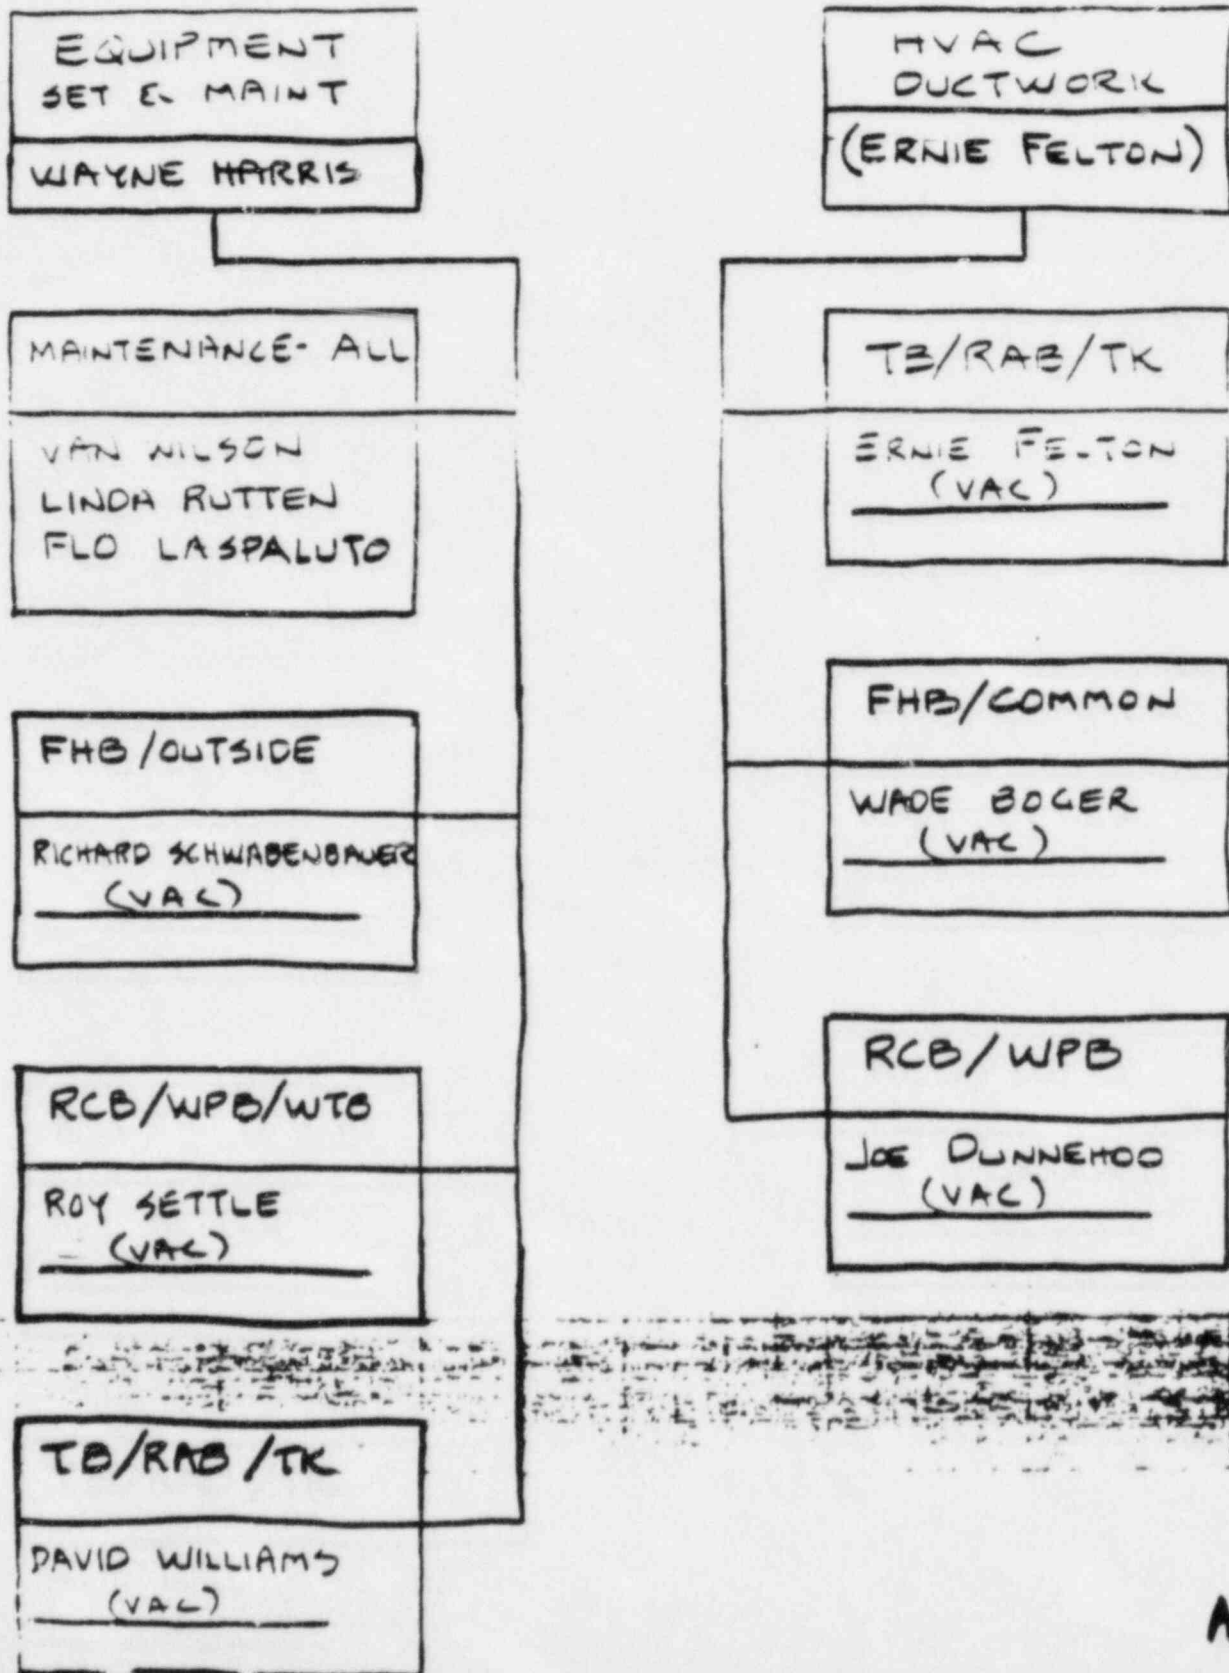 EQUIPMENT
SET & MAINT
WAYNE HARRIS
MAINTENANCE- ALL
VAN WILSON
LINDA RUTTEN
FLO LASPALUTO
FHB/OUTSIDE
RICHARD SCHWABENBAUER
(VAC)
RCB/WPB/WTB
ROY SETTLE
(VAC)
TB/RAB/TK
DAVID WILLIAMS
(VAC)
HVAC
DUCTWORK
(ERNIE FELTON)
TB/RAB/TK
ERNIE FELTON
(VAC)
FHB/COMMON
WADE BOGER
(VAC)
RCB/WPB
JOE DUNNEHOO
(VAC)